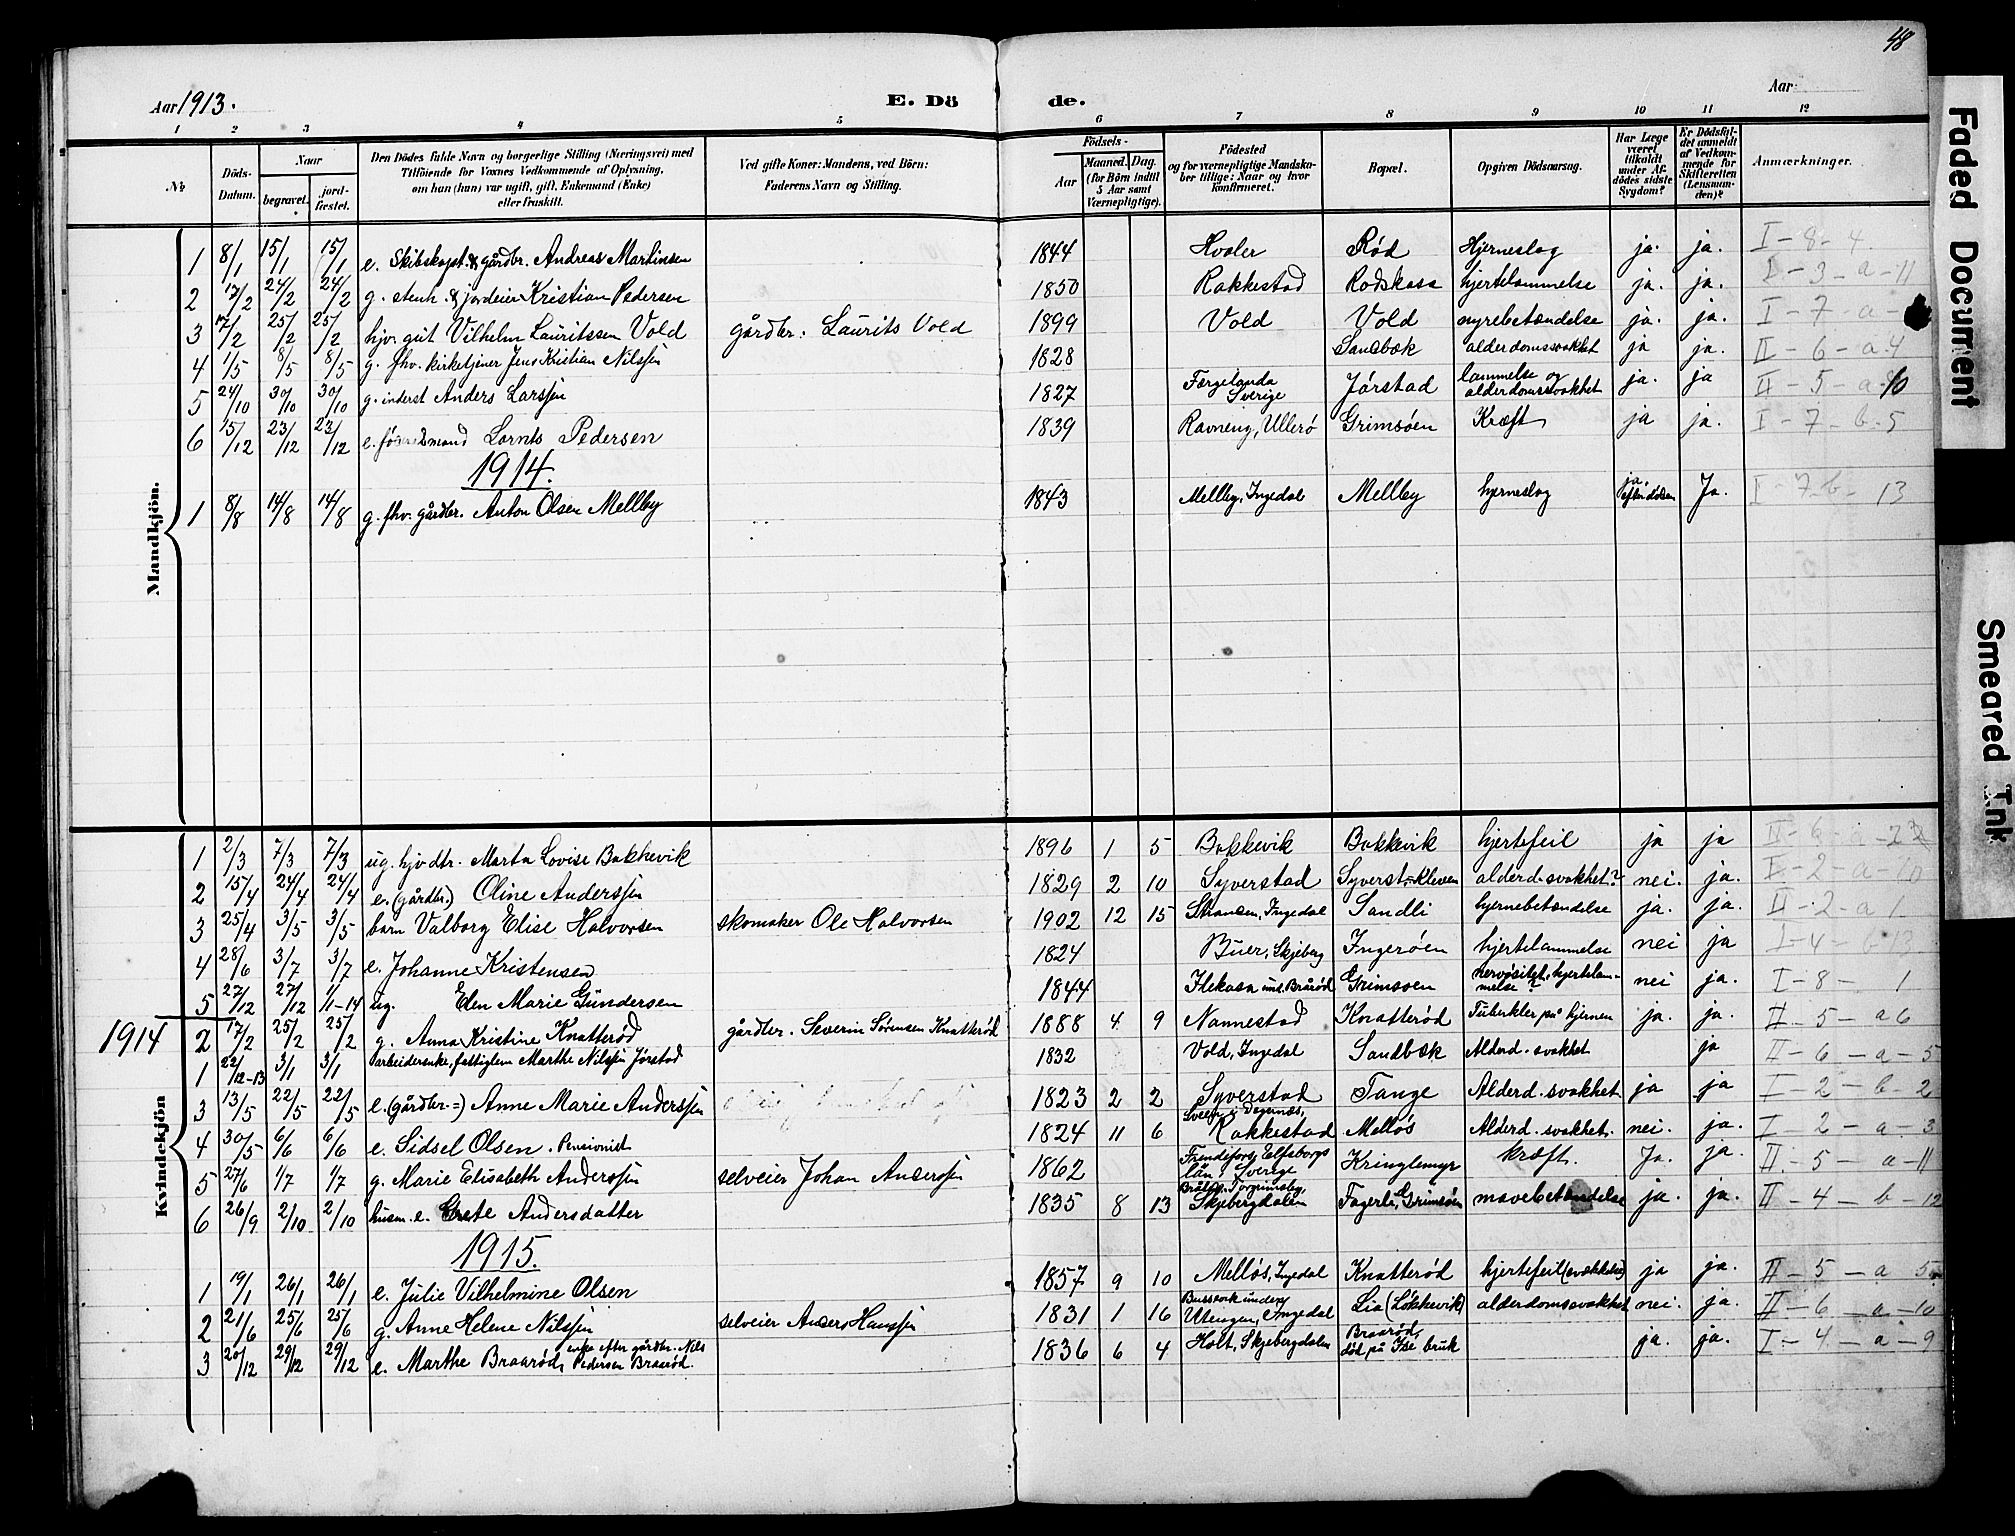 48
Aar 1913.
E. Döde.
Aar
1 2 3 4 5 6 7 8 9 10 11 12
No
Döds-Datum.
Naar
begravet.
jordfæstet.
Den Dödes fulde Navn og borgerlige Stilling (Næringsvei) med Tilföiende for Voxnes Vedkommende af Oplysning, om han (hun) var ugift, gift, Enkemand (Enke) eller fraskilt.
Ved gifte Koner: Mandens, ved Börn: Faderens Navn og Stilling.
Födsels-
Aar
Maaned. Dag.
(for Börn indtil 5 Aar samt Værnepligtige).
Födested og for værnepligtige Mandskaber tillige: Naar og hvor konfirmeret.
Bopæl.
Opgiven Dödsaarsag.
Har Læge været tilkaldt under Afdödes sidste Sygdom?
Er Dödsfaldet anmeldt af Vedkommende for Skifteretten (Lensmanden)?
Anmærkninger.
Mandkjön.
1 8/1 15/1 15/1 e. Skibskapt. & gårdbr. Andreas Martinsen 1844 Hvaler Rød Hjerneslag ja. ja. I-8-4
2 17/2 24/2 24/2 g. stenh. & jordeier Kristian Pedersen 1850 Rakkestad Rødskass hjertelammelse ja. ja. I-3-a-11
3 17/2 25/2 25/2 hjv. gut Vilhelm Lauritssen Vold gårdbr. Laurits Vold 1899 Vold Vold nyrebetændelse ja. ja. I-7-a-
4 1/5 8/5 8/5 g. fhv. kirketjener Jens Kristian Nilssen 1828 Sandbæk alderdomssvakhet ja ja. II-6-a-4
5 24/10 30/10 30/10 g. inderst Anders Larssen 1827 Færgelanda Sverige Jørstad lammelse og alderdomssvakhet ja. ja II-5-a-10
6 15/12 23/12 23/12 e. føderådsmand Lornts Pedersen 1839 Ravneng, Ullerø Grimsøen Kræft ja ja. I-7-b-5
1914.
1 8/8 14/8 14/8 g. fhv. gårdbr. Anton Olsen Mellby 1843 Mellby, Ingedal Mellby hjerneslag ja. efter døden Ja. I-7-b-13
Kvindekjön
1 2/3 7/3 7/3 ug. hjv. dtr. Marta Lovise Bakkevik 1896 1 5 Bakkevik Bakkevik hjertefeil ja ja II-6-a-2
2 15/4 24/4 24/4 e. (gårdbr.) Oline Anderssen 1829 2 10 Syverstad Syverst.-Kleven alderd. svakhet? nei. ja. I-2-a-10
3 25/4 3/5 3/5 barn Valborg Elise Halvorsen skomaker Ole Halvorsen 1902 12 15 Stranden, Ingedal Sandli hjernebetændelse ja. ja. II-2-a 1
4 28/6 3/7 3/7 e. Johanne Kristensen 1824 Buer, Skjeberg Ingerøen hjertelammelse nei ja I-4-b-13
5 27/12 27/12 1/1-14 ug. Elen Marie Gundersen 1844 Ilekasa und. Braarød Grimsøen nervøsitet, hjertelammelse? nei ja. I-8- 1
1914 2 17/2 25/2 25/2 g. Anna Kristine Knatterød gårdbr. Severin Sørensen Knatterød 1888 4 9 Nannestad Knatterød Tuberkler på hjernen ja. ja. II-5-a6
1 22/12-13 3/1 3/1 arbeiderenke, fattiglem Marthe Nilssen Jørstad 1832 Vold, Ingedal Sandbæk Alderd. svakhet ja II-6-a-5
3 13/5 22/5 22/5 e. (gårdbr.=) Anne Marie Anderssen 1823 2 2 Syverstad Tange Alderd. svakhet ja ja I-2-b-2
4 30/5 6/6 6/6 e. Sidsel Olsen. Pensionist 1824 11 6 Sveen i Degernes, Rakkestad Melløs Alderd. svakhet. nei. ja. I-2-a-3
5 27/6 1/7 1/7 g. Marie Elisabeth Anderssen selveier Johan Anderssen 1862 Frendefors, Elfsborgs län Sverige Kringlemyr kræft. Ja. ja. II.-5-a-11
6 26/9 2/10 2/10 husm. e. Grete Andersdatter 1835 8 13 Torgrimsby Skjebergdalen Fagerli, Grimsøen mavebetændelse ja. ja. II-4-b-12
1915.
1 19/1 26/1 26/1 e. Julie Vilhelmine Olsen 1857 9 10 Melløs, Ingedal Knatterød hjertefeil (svækkelse) ja ja. II-5-a-5
2 21/6 25/6 25/6 g. Anne Helene Nilssen selveier Anders Hanssen 1831 1 16 under Utengen, Ingedal Lia (Løkkevik) alderdomssvakhet nei. ja. II-6-a-10
3 20/12 29/12 29/12 e. Marthe Braarød, enke efter gårdbr. Nils Pedersen Braarød. 1836 6 4 Holt, Skjebergdalen Braarød, død på Ise bruk ja. ja. I-4-a-9
Faded Document
Smeared Ink